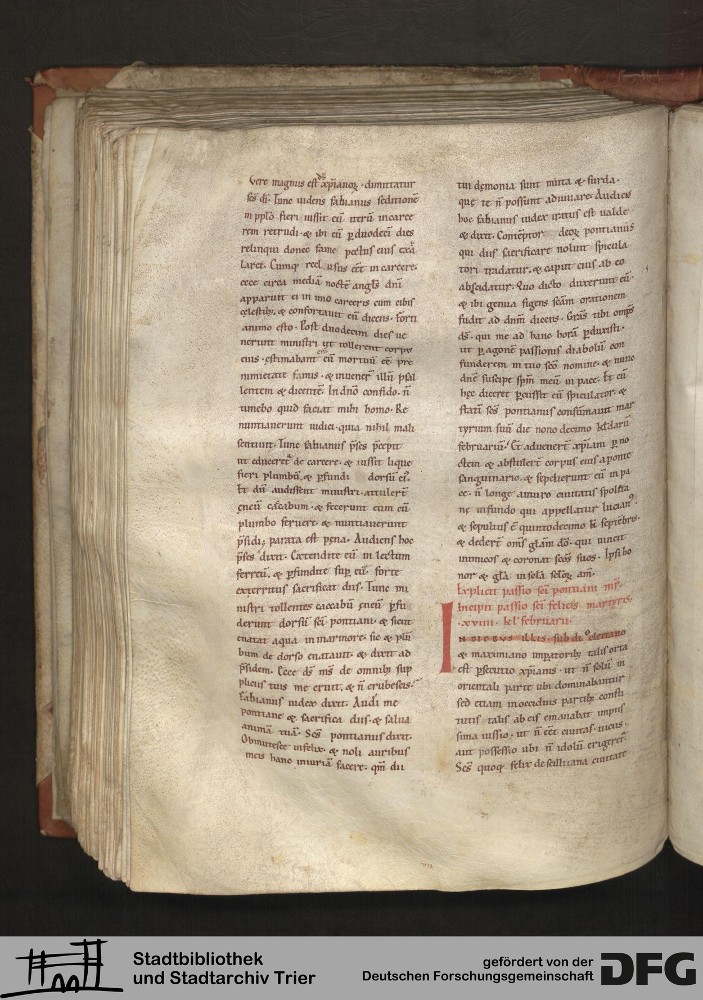 Vere magnus est ds xpianoꝝ · dimittatur
ses di · Tunc uidens fabianus seditionē
in pplo fieri iussit eū iterū in carce
rem retrudi · & ibi eū p duodeci dies
relinqui donec fame pectus eius exa
laret. Cumq recl usus eēt in carcere.
ecce circa mediā noctē angls dni
apparuit ei in imo carceris cum cibis
celestibȝ · & confortauit eū dicens · forti
animo esto · Post duodecim dies ue
nerunt ministri ut tollerent corpus
eius · estimabant enī eū mortuū eē pre
nimietate famis · & inuenerт illū psal
lentem & dicentē · In dno confido · n̄
timebo quid faciat mihi homo · Re
nuntiauerunt iudici · quia nihil mali
sentiunt · Tunc fabianus pses pcepit
ut educeret de carcere · & iussit lique
fieri plumbū · & pfundi dorsū ei9.
Et dū audissent ministri · attuler̄t
eneū caccabum · & fecerunt eum cū
plumbo feruere · & nuntiauerunt
psidi · parata est pena · Audiens hoc
pses dixit · Extendite eū in lectum
ferreū · & pfundite sup eū · forte
exterritus sacrificat diis · Tunc mi
nistri tollentes caccabū eneū pfu
derunt dorsū sci pontiani · & sicut
enatat aqua in marmore · sic & plū
bum de dorso enatauit · & dixit ad
psidem · Ecce ds ms de omnibȝ sup
plicus tuis me eruit · & n̄ erubescis ·
fabianus iudex dixit · Audi me
pontiane & sacrifica diis · & salua
animā tuā · Scs pontianus dixit ·
Obmutesce infelix · & noli auribus
meis hanc iniuriā facere · qm dii
tui demonia sunt muta & surda ·
que te n̄ possunt adiuuare · Audiens
hoc fabianus iudex iratus est ualde
& dixit · Cōtēptor deoꝝ pontianus
qui diis sacrificare noluit spicula
tori tradatur · & caput eius ab eo
abscidatur · Quo dicto duxerunt eū ·
& ibi genua figens scām orationem
fudit ad dnm dicens · Gras tibi omps
ds · qui me ad hanc horā pduxisti ·
ut p agonē passionis diabolū con
funderem in tuo scō nomine · & nunc
dnē suscipe spm meū in pace · Et cū
hec diceret pcussit eū spiculator · &
statī scs pontianus consūmauit mar
tyrium suū die nono decimo kldarū
februariū · Et aduener̄t xpiani p no
ctem & abstuler̄t corpus eius a ponte
sanguinario · & sepelierunt eū in pa
ce · n̄ longe a muro ciuitatis spoleta
ne in fundo qui appellatur lucian9
& sepultus ē quintodecimo kł septēbris ·
& deder̄t oms glām do · qui uincit
inimicos & coronat scōs suos · Ipsi ho
nor & gla in scla scloꝝ am̄ ·
Explicit passio sci pontiani mr ·
Incipit passio sci felicis martyris ·
· xviii · kł februarii ·
IN DIEBUS illis · sub diocletiano
& maximiano impatoribȝ talis orta
est psecutio xpianis · ut n̄ solū in
orientali parte ubi dominabantur
sed etiam in occiduis partibȝ consti
tutis talis ab eis emanabat impiis
sima iussio · ut n̄ eēt ciuitas · uicus ·
aut possessio ubi n̄ idolū erigeret ·
Scs quoq felix de scillitana ciuitate
Stadtbibliothek
und Stadtarchiv Trier
gefördert von der
Deutschen Forschungsgemeinschaft
DFG